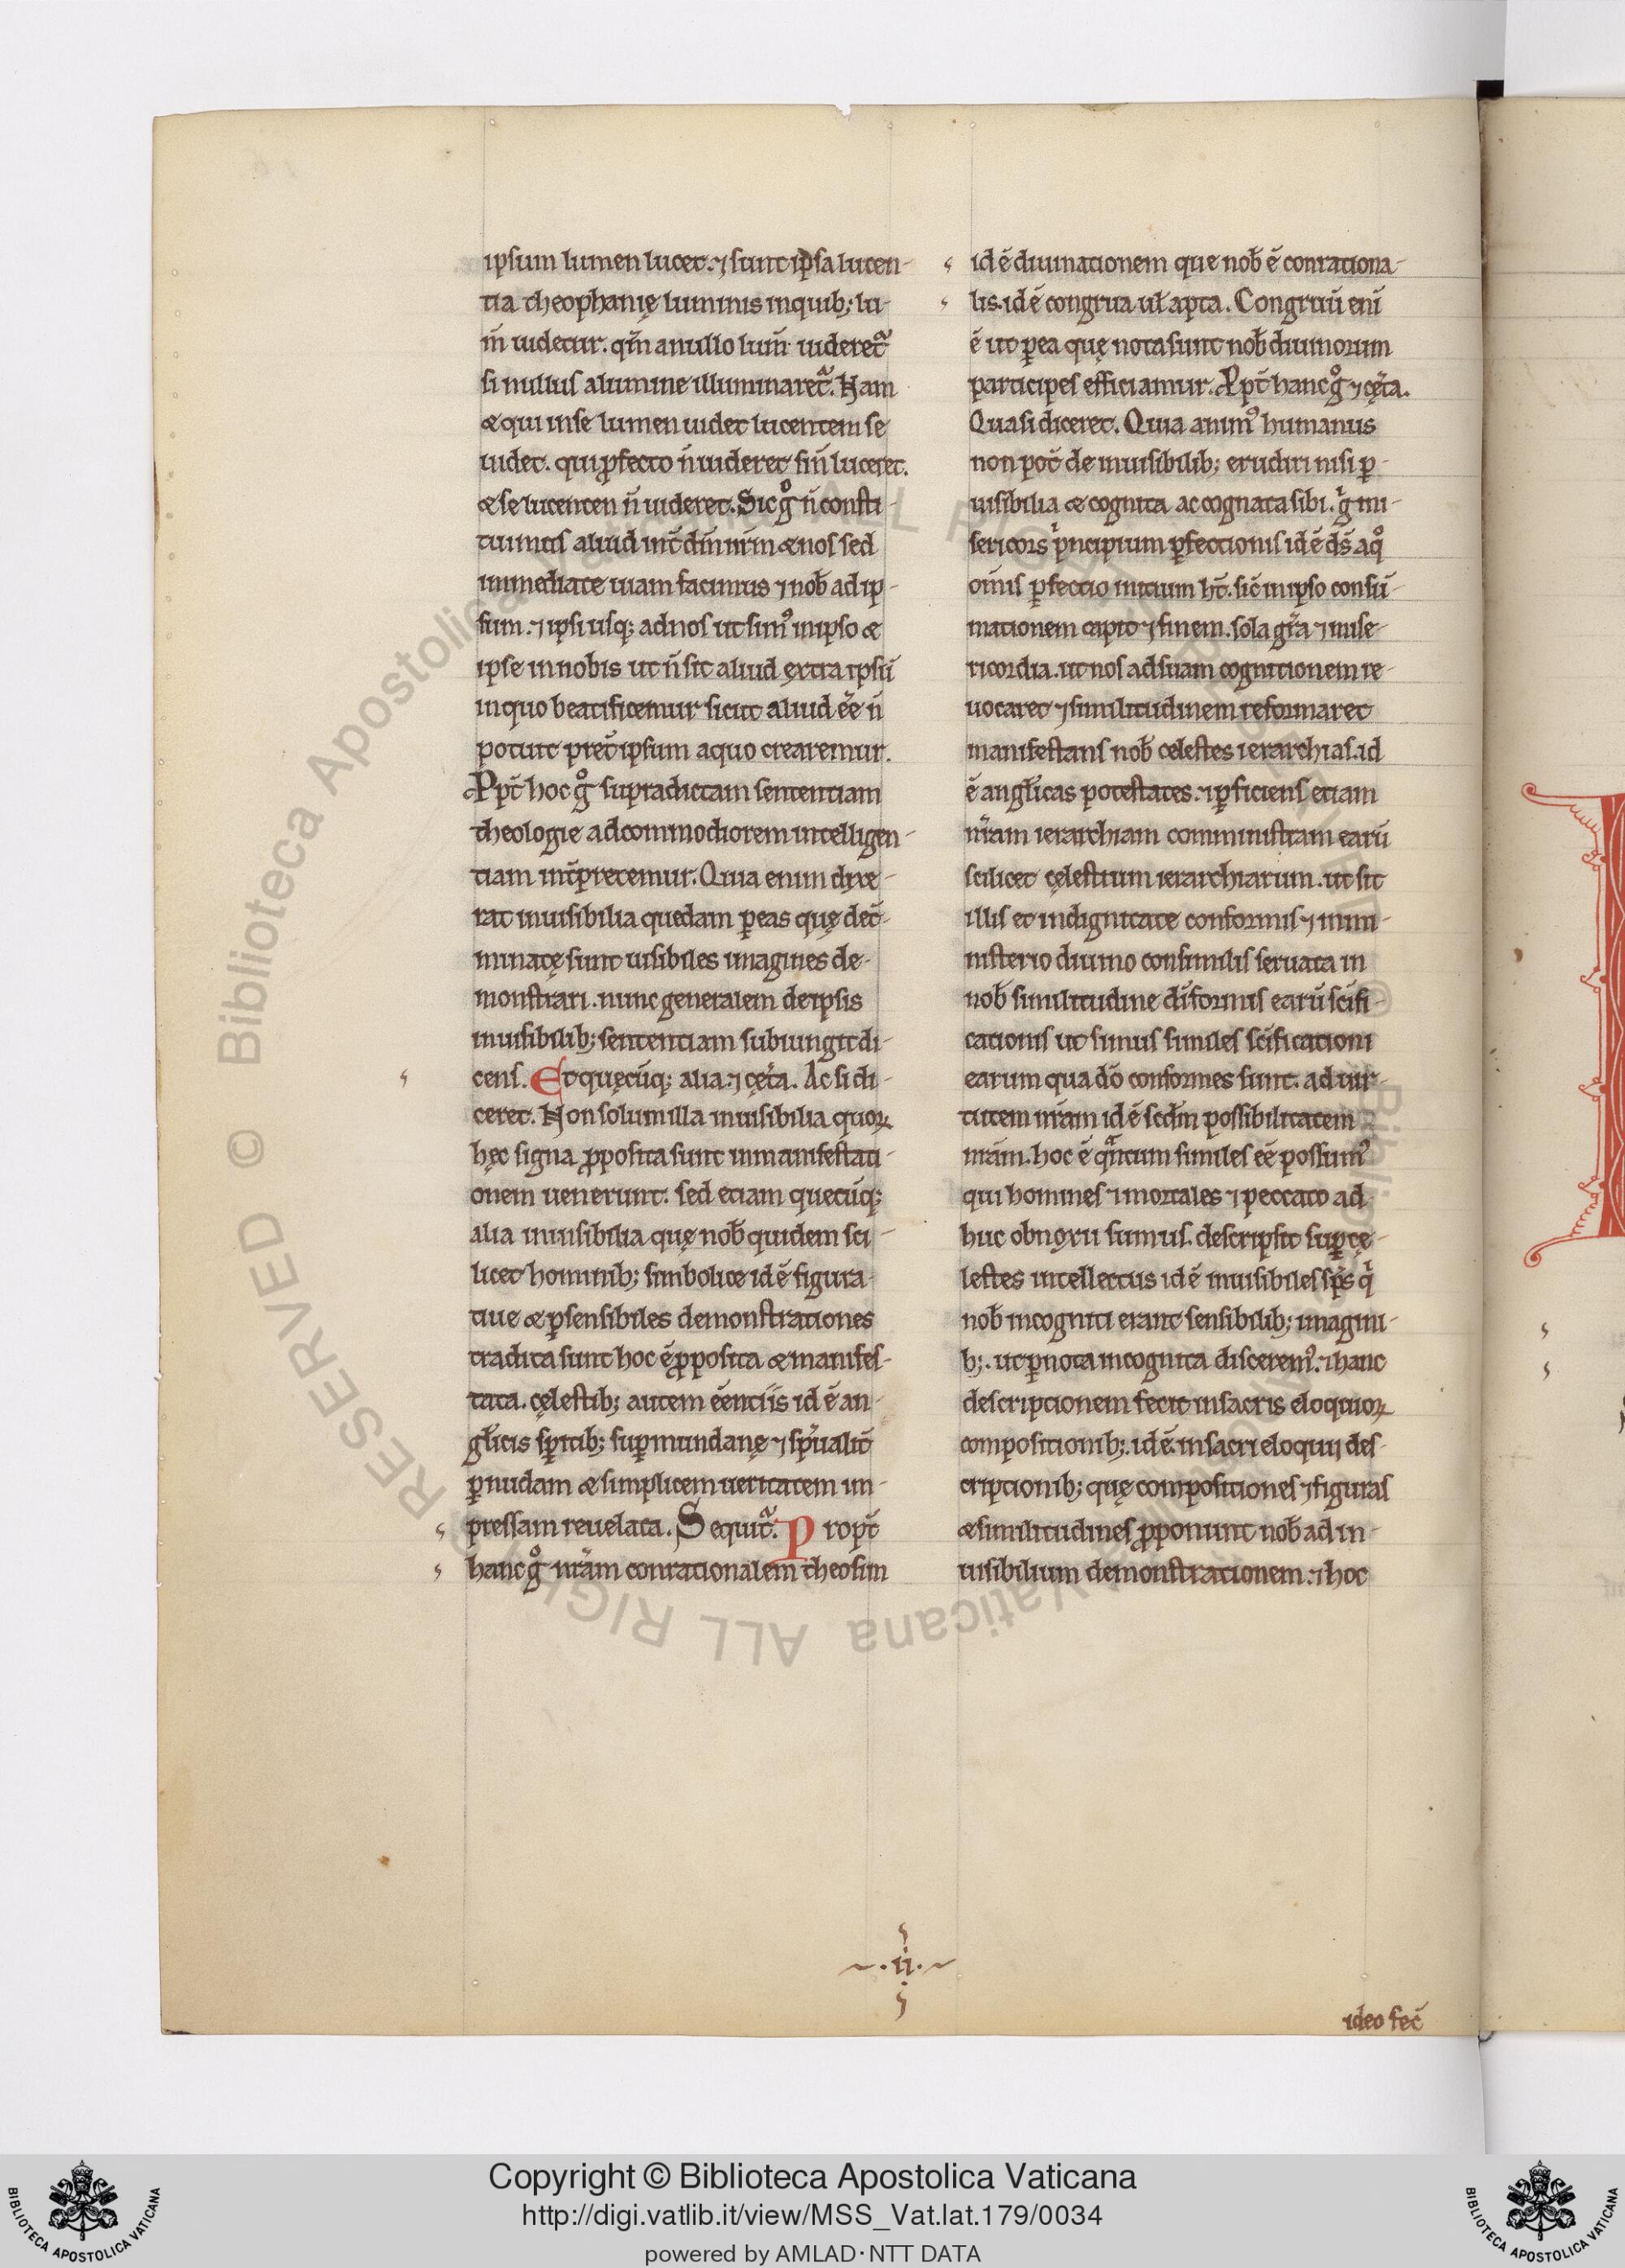 ipsum lumen lucet. ⁊ sunt ipsa lucen-
tia theophanię luminis in quib; lu-
m̄ uidetur. qm̄ a nullo lum̄ uideret᷑
si nullus a lumine illuminaret᷑. Nam
æ qui in se lumen uidet lucentem se
uidet. qui ꝓfecto n̄ uideret si n̄ luceret.
æ se lucentem n̄ uideret. Sic gͦ n̄ consti-
tuimus aliud int̄ dm̄ nr̄m æ nos sed
immediate uiam facimus ⁊ nob̄ ad ip-
sum. ⁊ ipsi usq; ad nos ut simꝰ in ipso æ
ipse in nobis ut n̄ sit aliud ext̄a ipsū
in quo beatificemur sicut aliud eē n̄
potuit pret̄ ipsum a quo crearemur.
Ppt̄ hoc gͦ supradictam sententiam
theologie ad commodiorem intelligen-
tiam int̄pretemur. Quia enim dixe-
rat inuisibilia quedam ꝑ eas quę det̄-
minatę sunt uisibiles imagines de-
monstrari. nunc generalem de ipsis
inuisibilib; sententiam subiungit di-
cens. Et quęcūq; alia ⁊ cęt̄a. Ac si di-
ceret. Non solum illa inuisibilia quoꝝ
hęc signa ꝓposita sunt in manifestati-
onem uenerunt. sed etiam quecūq;
alia inuisibilia quę nob̄ quidem sci-
licet hominib; simbolice id ē figura-
tiue æ ꝑ sensibiles demonstrationes
tradita sunt hoc ē ꝓposita æ manifes-
tata. cęlestib; autem eēntiis id ē an-
gl̄icis spiritib; suꝑmundanę ⁊ spūalit̄
ꝑ nudam æ simplicem ueritatem im-
pressam reuelata. Sequit᷑. Propt̄
hanc gͦ nr̄am conrationalem theosim
id ē diuinationem que nob̄ ē conrationa-
lis. id ē congrua ul̄ apta. Congruū enī
ē ut ꝑ ea quę nota sunt nob̄ diuinorum
participes efficiamur. Ppt̄ hanc gͦ ⁊ cęt̄a.
Quasi diceret. Quia animꝰ humanus
non pot̄ de inuisibilib; erudiri nisi ꝑ
uisibilia æ cognita ac cognata sibi. gͥ mi-
sericors pͥncipium ꝑfectionis id ē ds̄ a qͦ
om̄is ꝑfectio initium ht̄. sic̄ in ipso consū-
mationem capit ⁊ finem. sola gr̄a ⁊ mise-
ricordia. ut nos ad suam cognitionem re-
uocaret ⁊ similitudinem reformaret
manifestans nob̄ celestes ierarchias. id
ē angl̄icas potestates. ⁊ ꝑficiens etiam
nr̄am ierarchiam comministram earū
scilicet cęlestium ierarchiarum. ut sit
illis et in dignitate conformis ⁊ in mi-
nisterio diuino consimilis seruata in
nob̄ similitudine dīformis earū sc̄ifi-
cationis ut simus similes sc̄ificationi
earum qua dō conformes sunt. ad uir-
tutem nr̄am id ē sed̄m possibilitatem
nr̄am. hoc ē qͣntum similes eē possumꝰ
qui homines ⁊ mortales ⁊ peccato ad
huc obnoxii sumus. descripsit suꝑcę-
lestes intellectus id ē inuisibiles sp̄s qͥ
nob̄ incogniti erant sensibilib; imagini-
b;. ut ꝑ nota incognita disceremꝰ. ⁊ hanc
descriptionem fecit in sacris eloquioꝝ
compositionib;. id ē in sacri eloquii des-
criptionib; quę compositiones ⁊ figuras
æ similitudines ꝓponunt nob̄ ad in-
uisibilium demonstrationem. ⁊ hoc
.ii.
ideo fec̄
© Biblioteca Apostolica Vaticana ALL RIGHTS RESERVED
Copyright © Biblioteca Apostolica Vaticana
http://digi.vatlib.it/view/MSS_Vat.lat.179/0034
powered by AMLAD·NTT DATA
BIBLIOTECA APOSTOLICA VATICANA
BIBLIOTECA APOSTOLICA VATICANA